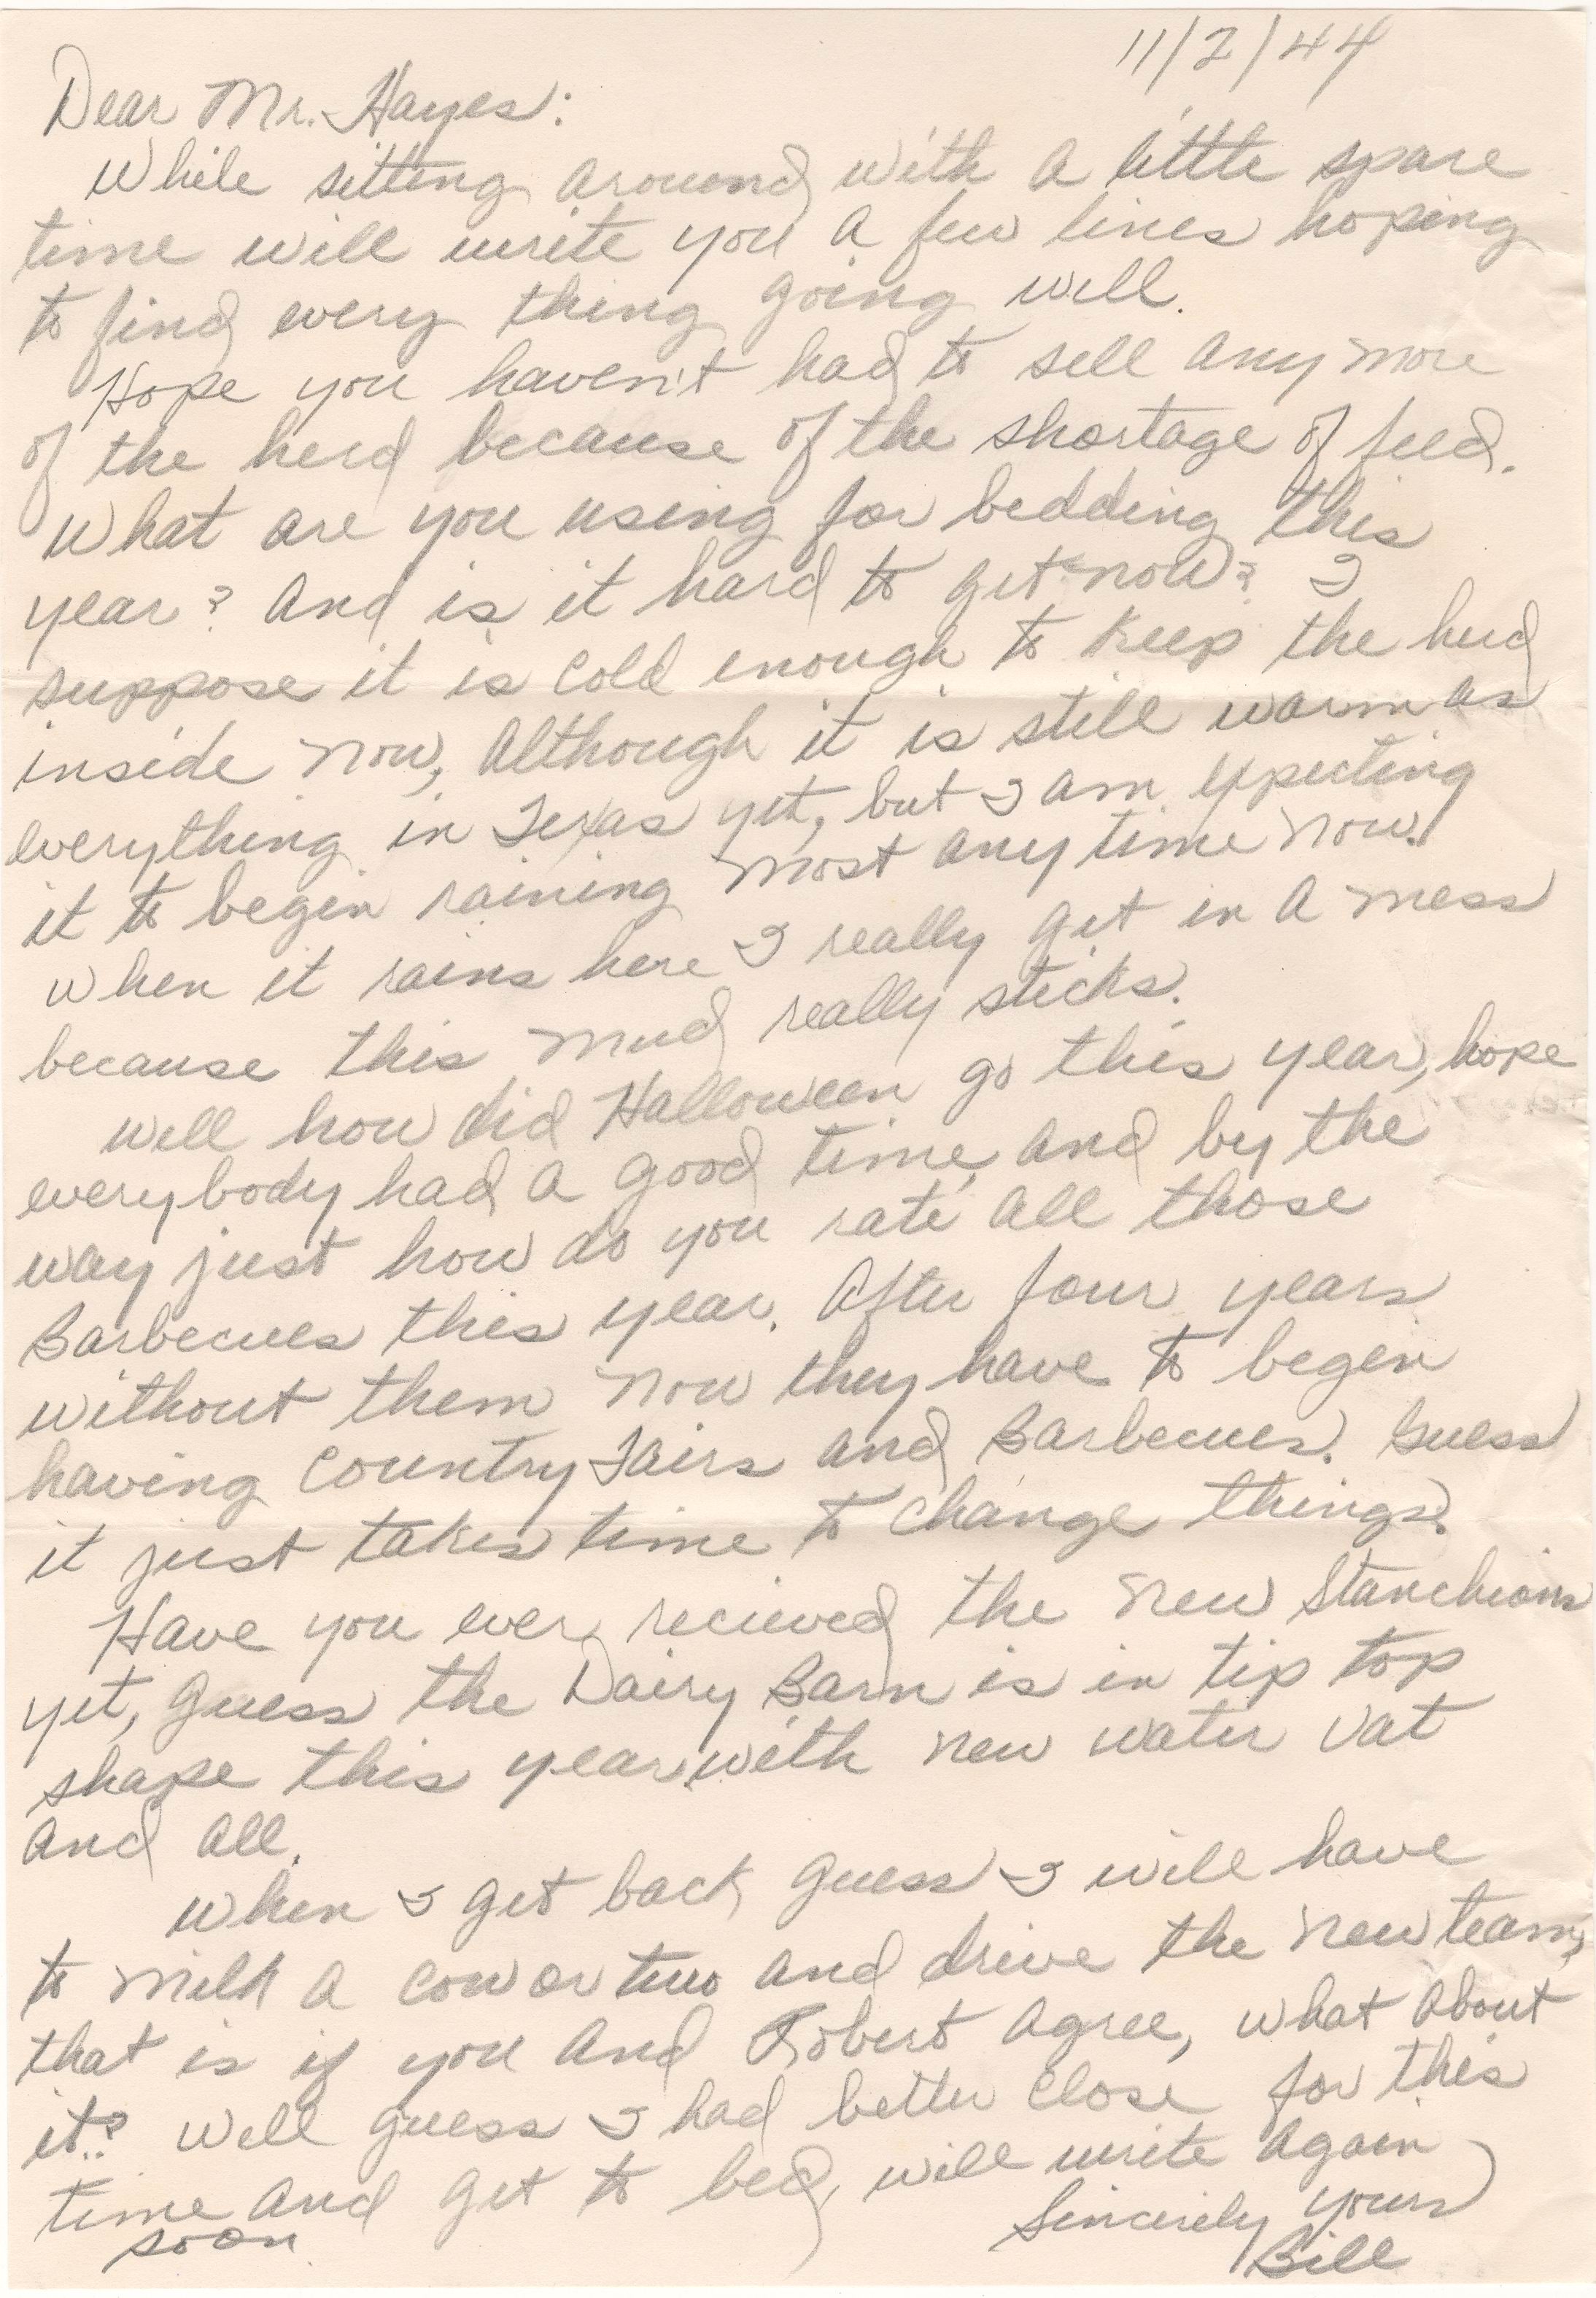 11/2/44
Dear Mr. Hayes:
While sitting around with a little spare
time will write you a few lines hoping
to find every thing going well.
Hope you haven't had to sell any more
of the herd because of the shortage of feed.
What are you using for bedding this
year? And is it hard to get now? I
suppose it is cold enough to keep the herd
inside now, although it is still warm as
everything in Texas yet, but I am expecting
it to begin raining most any time now.
When it rains here I really get in a mess
because this mud really sticks.
Well how did Halloween go this year, hope
everybody had a good time, and by the
way just how do you rate all those
Barbecues this year. After four years
without them now they have to begin
having Country Fairs and Barbecues. Guess
it just takes time to change things.
Have you ever recieved the new Stanchions
yet, guess the Dairy Barn is in tip top
shape this year with new water vat
and all.
When I get back guess I will have
to milk a cow or two and drive the new team,
that is if you and Robert agree, what about
it? Well guess I had better close for this
time and get to bed, will write again
soon
Sincerely yours
Bill